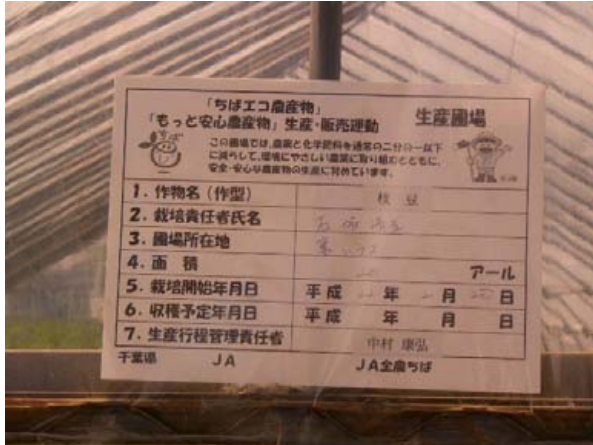 「ちばエコ農産物」
「もっと安心農産物」生産・販売運動
生産圃場
この圃場では、農薬と化学肥料を通常の二分の一以下
に減らして、環境にやさしい農業に取り組むとともに、
安全・安心な農産物の生産に努めています。
1. 作物名(作型) 枝豆
2. 栽培責任者氏名
3. 圃場所在地
4. 面積 アール
5. 栽培開始年月日 平成 年 月 日
6. 収穫予定年月日 平成 年 月 日
7. 生産行程管理責任者 中村 康弘
千葉県 JA JA全農ちば